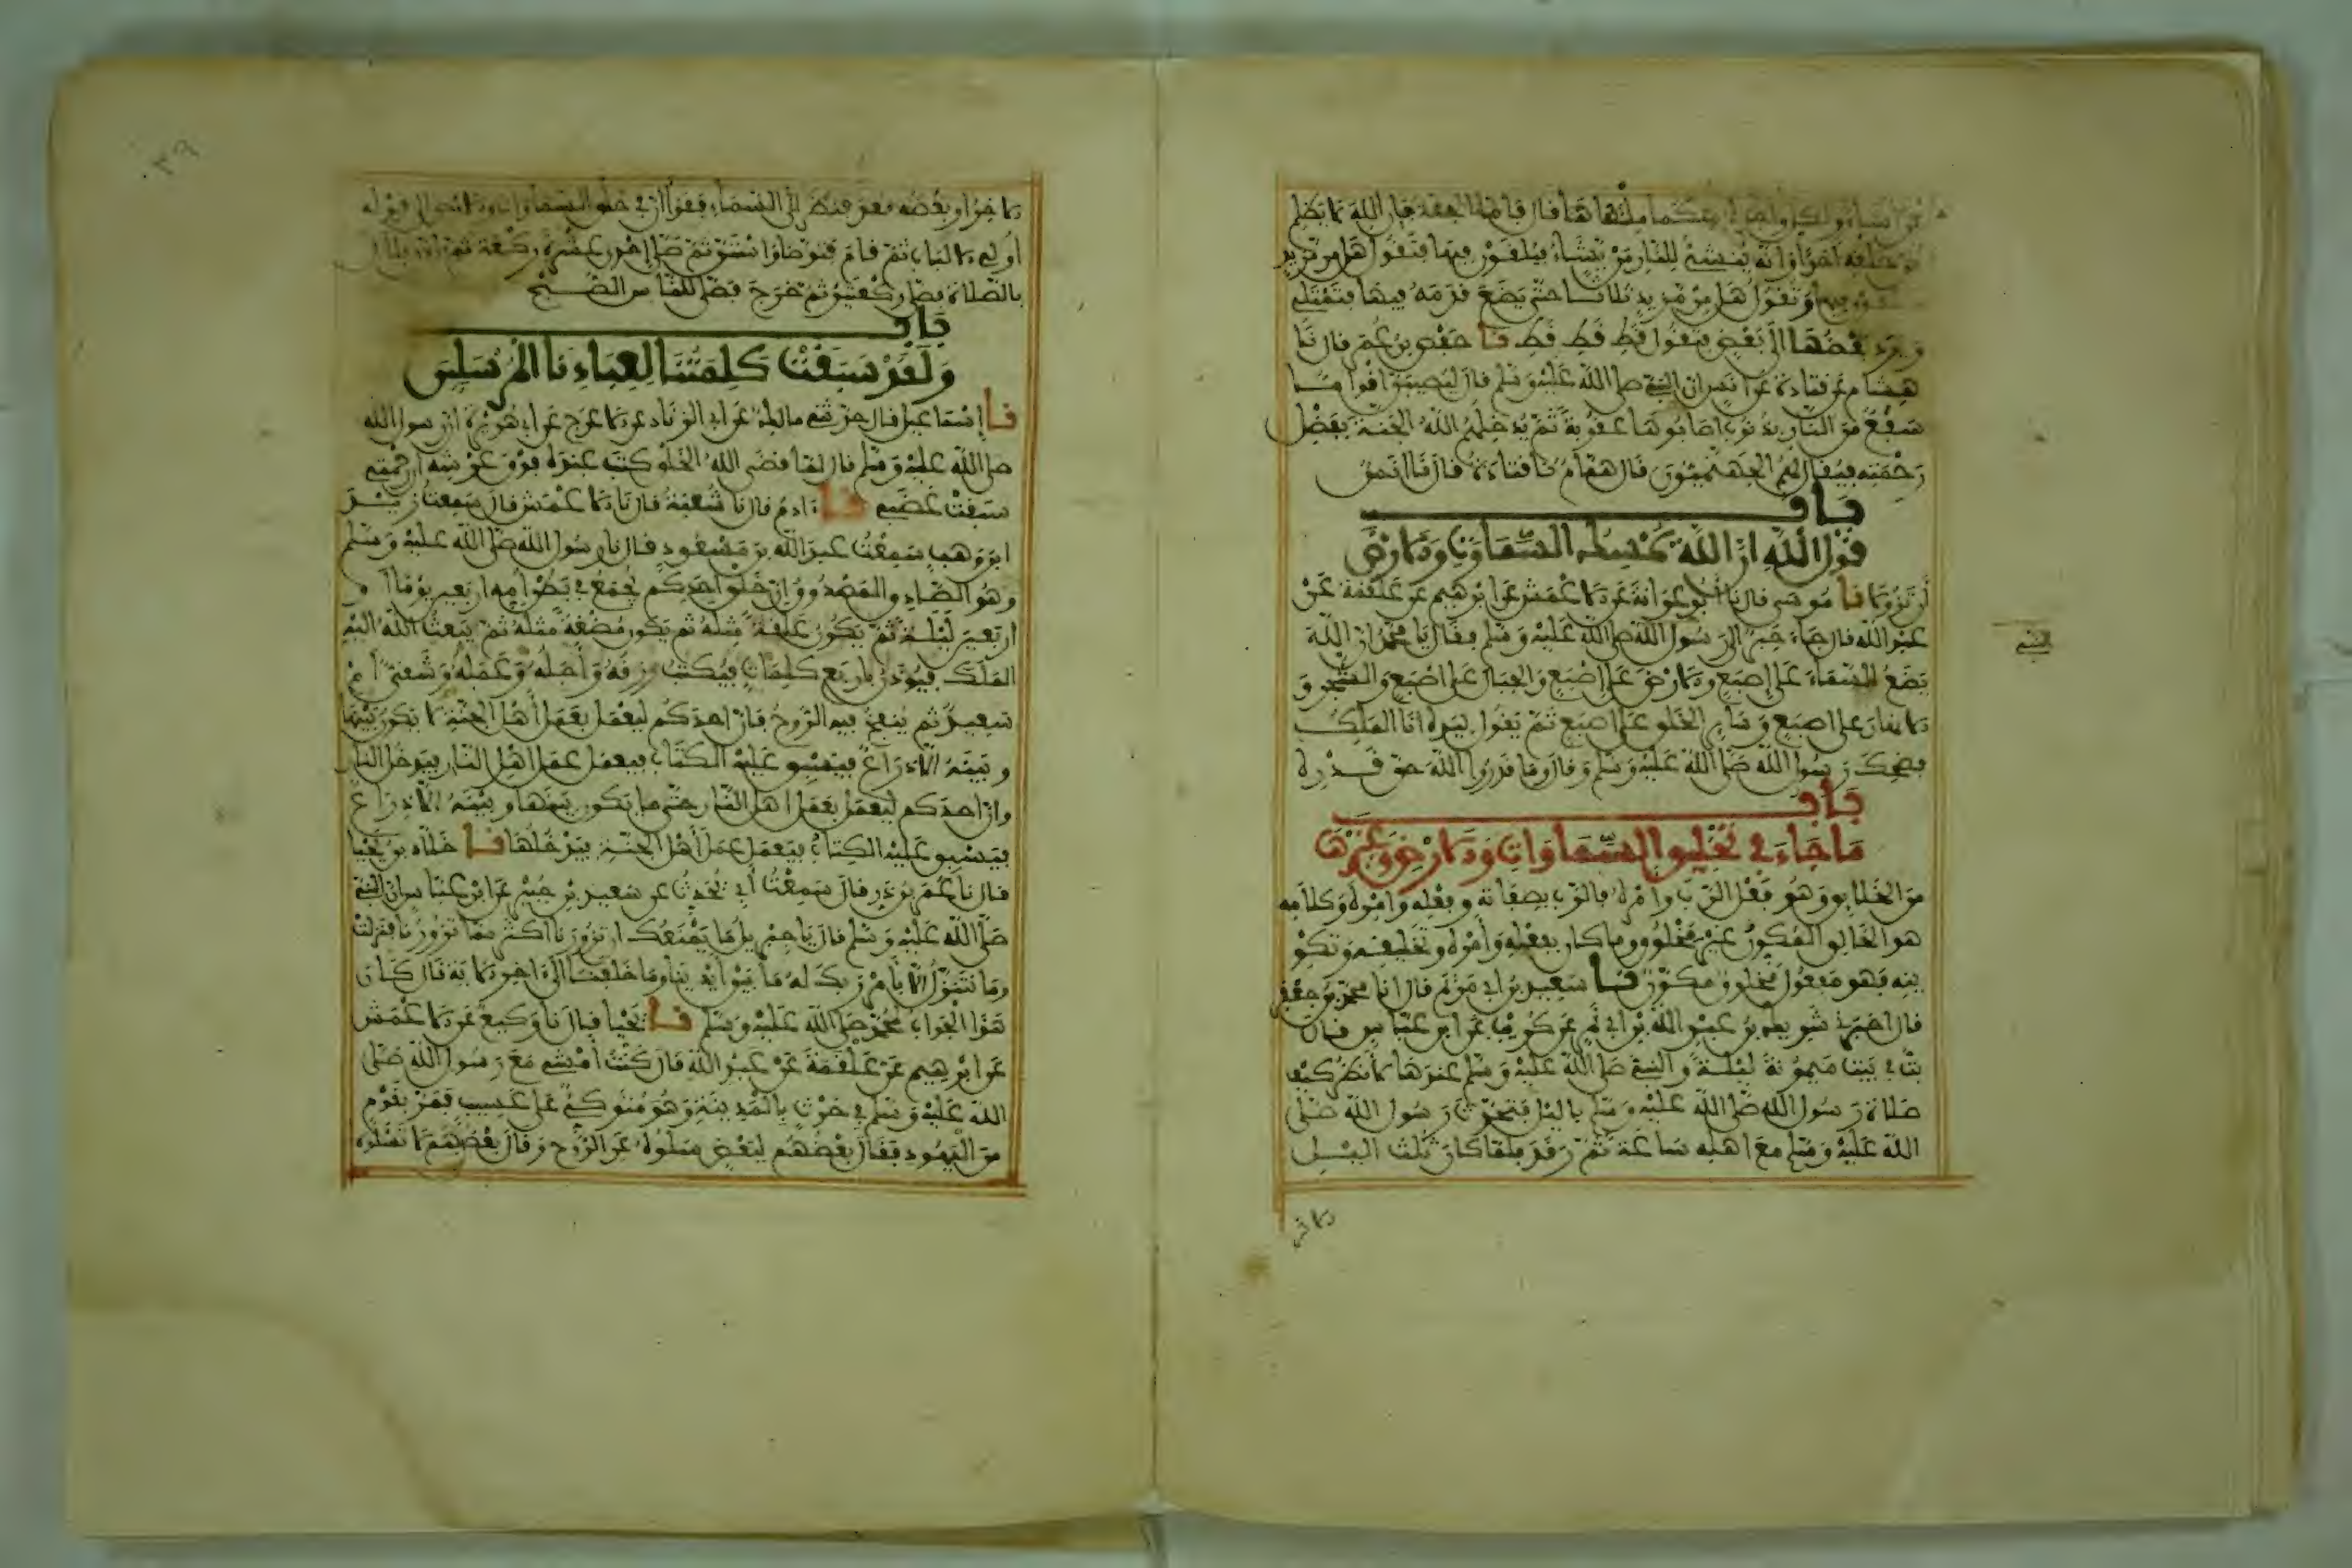 من أشاء ولكل واحدة منكما ملؤها قال فأما الجنة فإن الله لا يظلم
من خلقه أحدا وأنه ينشئ للنار من يشاء فيلقون فيها فتقول هل من مزيد
فيها وتقول هل من مزيد ثلاثا حتى يضع قدمه فيها فتمتلئ
ويرد بعضها إلى بعض فتقول قط قط قط نا حفص بن عمر قال نا
هشام عن قتادة عن أنس أن النبي صلى الله عليه وسلم قال ليصيبن أقواما
سفع من النار بذنوب أصابوها عقوبة ثم يدخلهم الله الجنة بفضل
رحمته فيقال لهم الجهنميون قال همام نا قتادة قال نا أنس
باب
قول الله إن الله يمسك السماوات والأرض
أن تزولا نا موسى قال نا أبو عوانة عن الأعمش عن إبرهيم عن علقمة عن
عبد الله قال جاء حبر إلى رسول الله صلى الله عليه وسلم فقال يا محمد إن الله
يضع السماء على إصبع والأرض على إصبع والجبال على إصبع والشجر و
الأنهار على إصبع وسائر الخلق على إصبع ثم يقول بيده أنا الملك
فضحك رسول الله صلى الله عليه وسلم وقال وما قدروا الله حق قدره
باب
ما جاء في تخليق السماوات والأرض وغيرها
من الخلائق وهو فعل الرب وأمره فالرب بصفاته وفعله وأمره وكلامه
هو الخالق المكون غير مخلوق وما كان بفعله وأمره وتخليقه وتكو
ينه فهو مفعول مخلوق مكون نا سعيد بن أبي مريم قال أنا محمد بن جعفر
قال أخبرني شريك بن عبد الله بن أبي نمر عن كريب عن ابن عباس قال
بت في بيت ميمونة ليلة والنبي صلى الله عليه وسلم عندها لأنظر كيف
صلاة رسول الله صلى الله عليه وسلم بالليل فتحدث رسول الله صلى
الله عليه وسلم مع أهله ساعة ثم رقد فلما كان ثلث الليل
الآخر
الآخر أو بعضه قعد فنظر إلى السماء فقرأ إن في خلق السماوات والأرض إلى قوله
أولي الألباب ثم قام فتوضأ واستن ثم صلى إحدى عشرة ركعة ثم أذن بلال
بالصلاة فصلى ركعتين ثم خرج فصلى للناس الصبح
باب
ولقد سبقت كلمتنا لعبادنا المرسلين
نا إسماعيل قال حدثني مالك عن أبي الزناد عن الأعرج عن أبي هريرة أن رسول الله
صلى الله عليه وسلم قال لما قضى الله الخلق كتب عنده فوق عرشه إن رحمتي
سبقت غضبي نا آدم قال نا شعبة قال نا الأعمش قال سمعت زيد
ابن وهب سمعت عبد الله بن مسعود قال نا رسول الله صلى الله عليه وسلم
وهو الصادق والمصدوق إن خلق أحدكم يجمع في بطن أمه أربعين يوما أو
أربعين ليلة ثم يكون علقة مثله ثم يكون مضغة مثله ثم يبعث الله إليه
الملك فيؤذن بأربع كلمات فيكتب رزقه وأجله وعمله وشقي أم
سعيد ثم ينفخ فيه الروح فإن أحدكم ليعمل بعمل أهل الجنة لا يكون بينها
وبينه إلا ذراع فيسبق عليه الكتاب فيعمل عمل أهل النار فيدخل النار
وإن أحدكم ليعمل بعمل أهل النار حتى ما يكون بينها وبينه إلا ذراع
فيسبق عليه الكتاب فيعمل عمل أهل الجنة فيدخلها نا خلاد بن يحيا
قال نا عمر بن ذر قال سمعت أبي يحدث عن سعيد بن جبير عن ابن عباس أن النبي
صلى الله عليه وسلم قال يا جبريل ما يمنعك أن تزورنا أكثر مما تزورنا فنزلت
وما نتنزل إلا بأمر ربك له ما بين أيدينا وما خلفنا إلى آخر الآية قال كان
هذا الجواب محمد صلى الله عليه وسلم نا يحيا قال نا وكيع عن الأعمش
عن إبرهيم عن علقمة عن عبد الله قال كنت أمشي مع رسول الله صلى
الله عليه وسلم في حرث بالمدينة وهو متوكئ على عسيب فمر بقوم
من اليهود فقال بعضهم لبعض سلوه عن الروح وقال بعضهم لا تسلوه